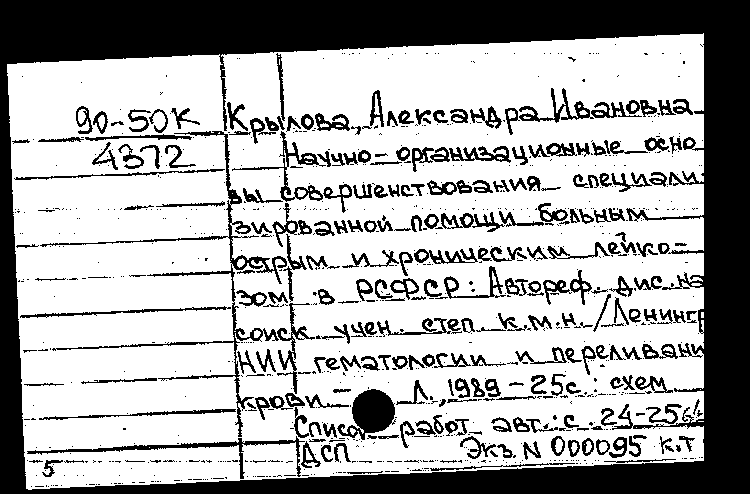 90-50К Крылова, Александра Ивановна
4372 Научно-организационные осно
вы совершенствования специали
зированной помощи больным
острым и хроническим лейко-
зом в РСФСР: Автореф. дис. на
соиск. учен. степ. к.м.н. / Ленингр
НИИ гематологии и переливани
крови. - Л., 1989 - 25с.: схем
Список работ авт.: с. 24-25
ДСП Экз N 000095 к.т
5